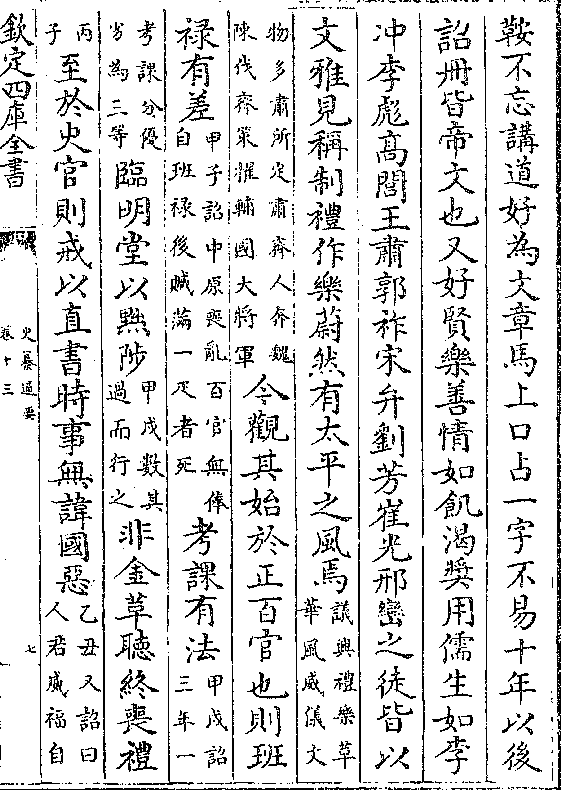 鞍不忘講道好為文章馬上口占一字不易十年以後
詔冊皆帝文也又好賢樂善情如飢渴奬用儒生如李
冲李彪高閭王肅郭祚宋弁劉芳崔光邢巒之徒皆以
文雅見稱制禮作樂蔚然有太平之風焉議興禮樂革華風威儀文
物多肅所定肅齊人奔魏陳伐齊策擢輔國大將軍今觀其始於正百官也則班
禄有差甲子詔中原喪亂百官無俸自班禄後贓滿一疋者死考課有法甲戌詔三年一
考課分優劣為三等臨明堂以黜陟甲戌數其過而行之非金革聽終喪禮
丙子至於史官則戒以直書時事無諱國惡乙丑又詔曰人君威福自
欽定四庫全書
史纂通要
卷十三
七